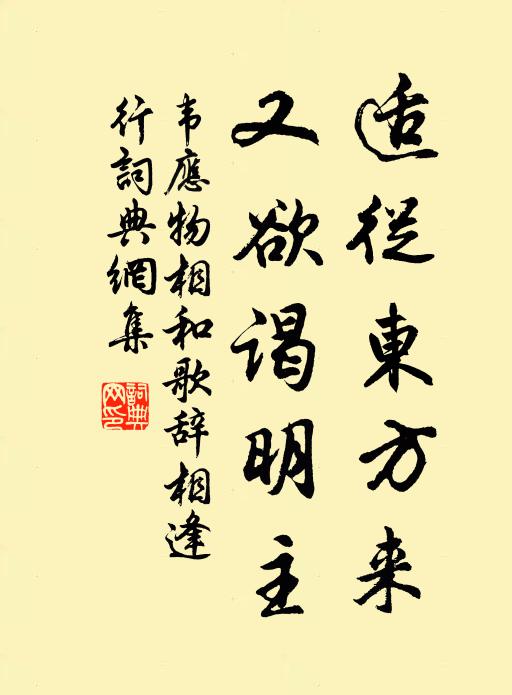 适從東方来
又欲謁明主
韦應物相和歌辞相逢
行詞典網集
詞典
网印